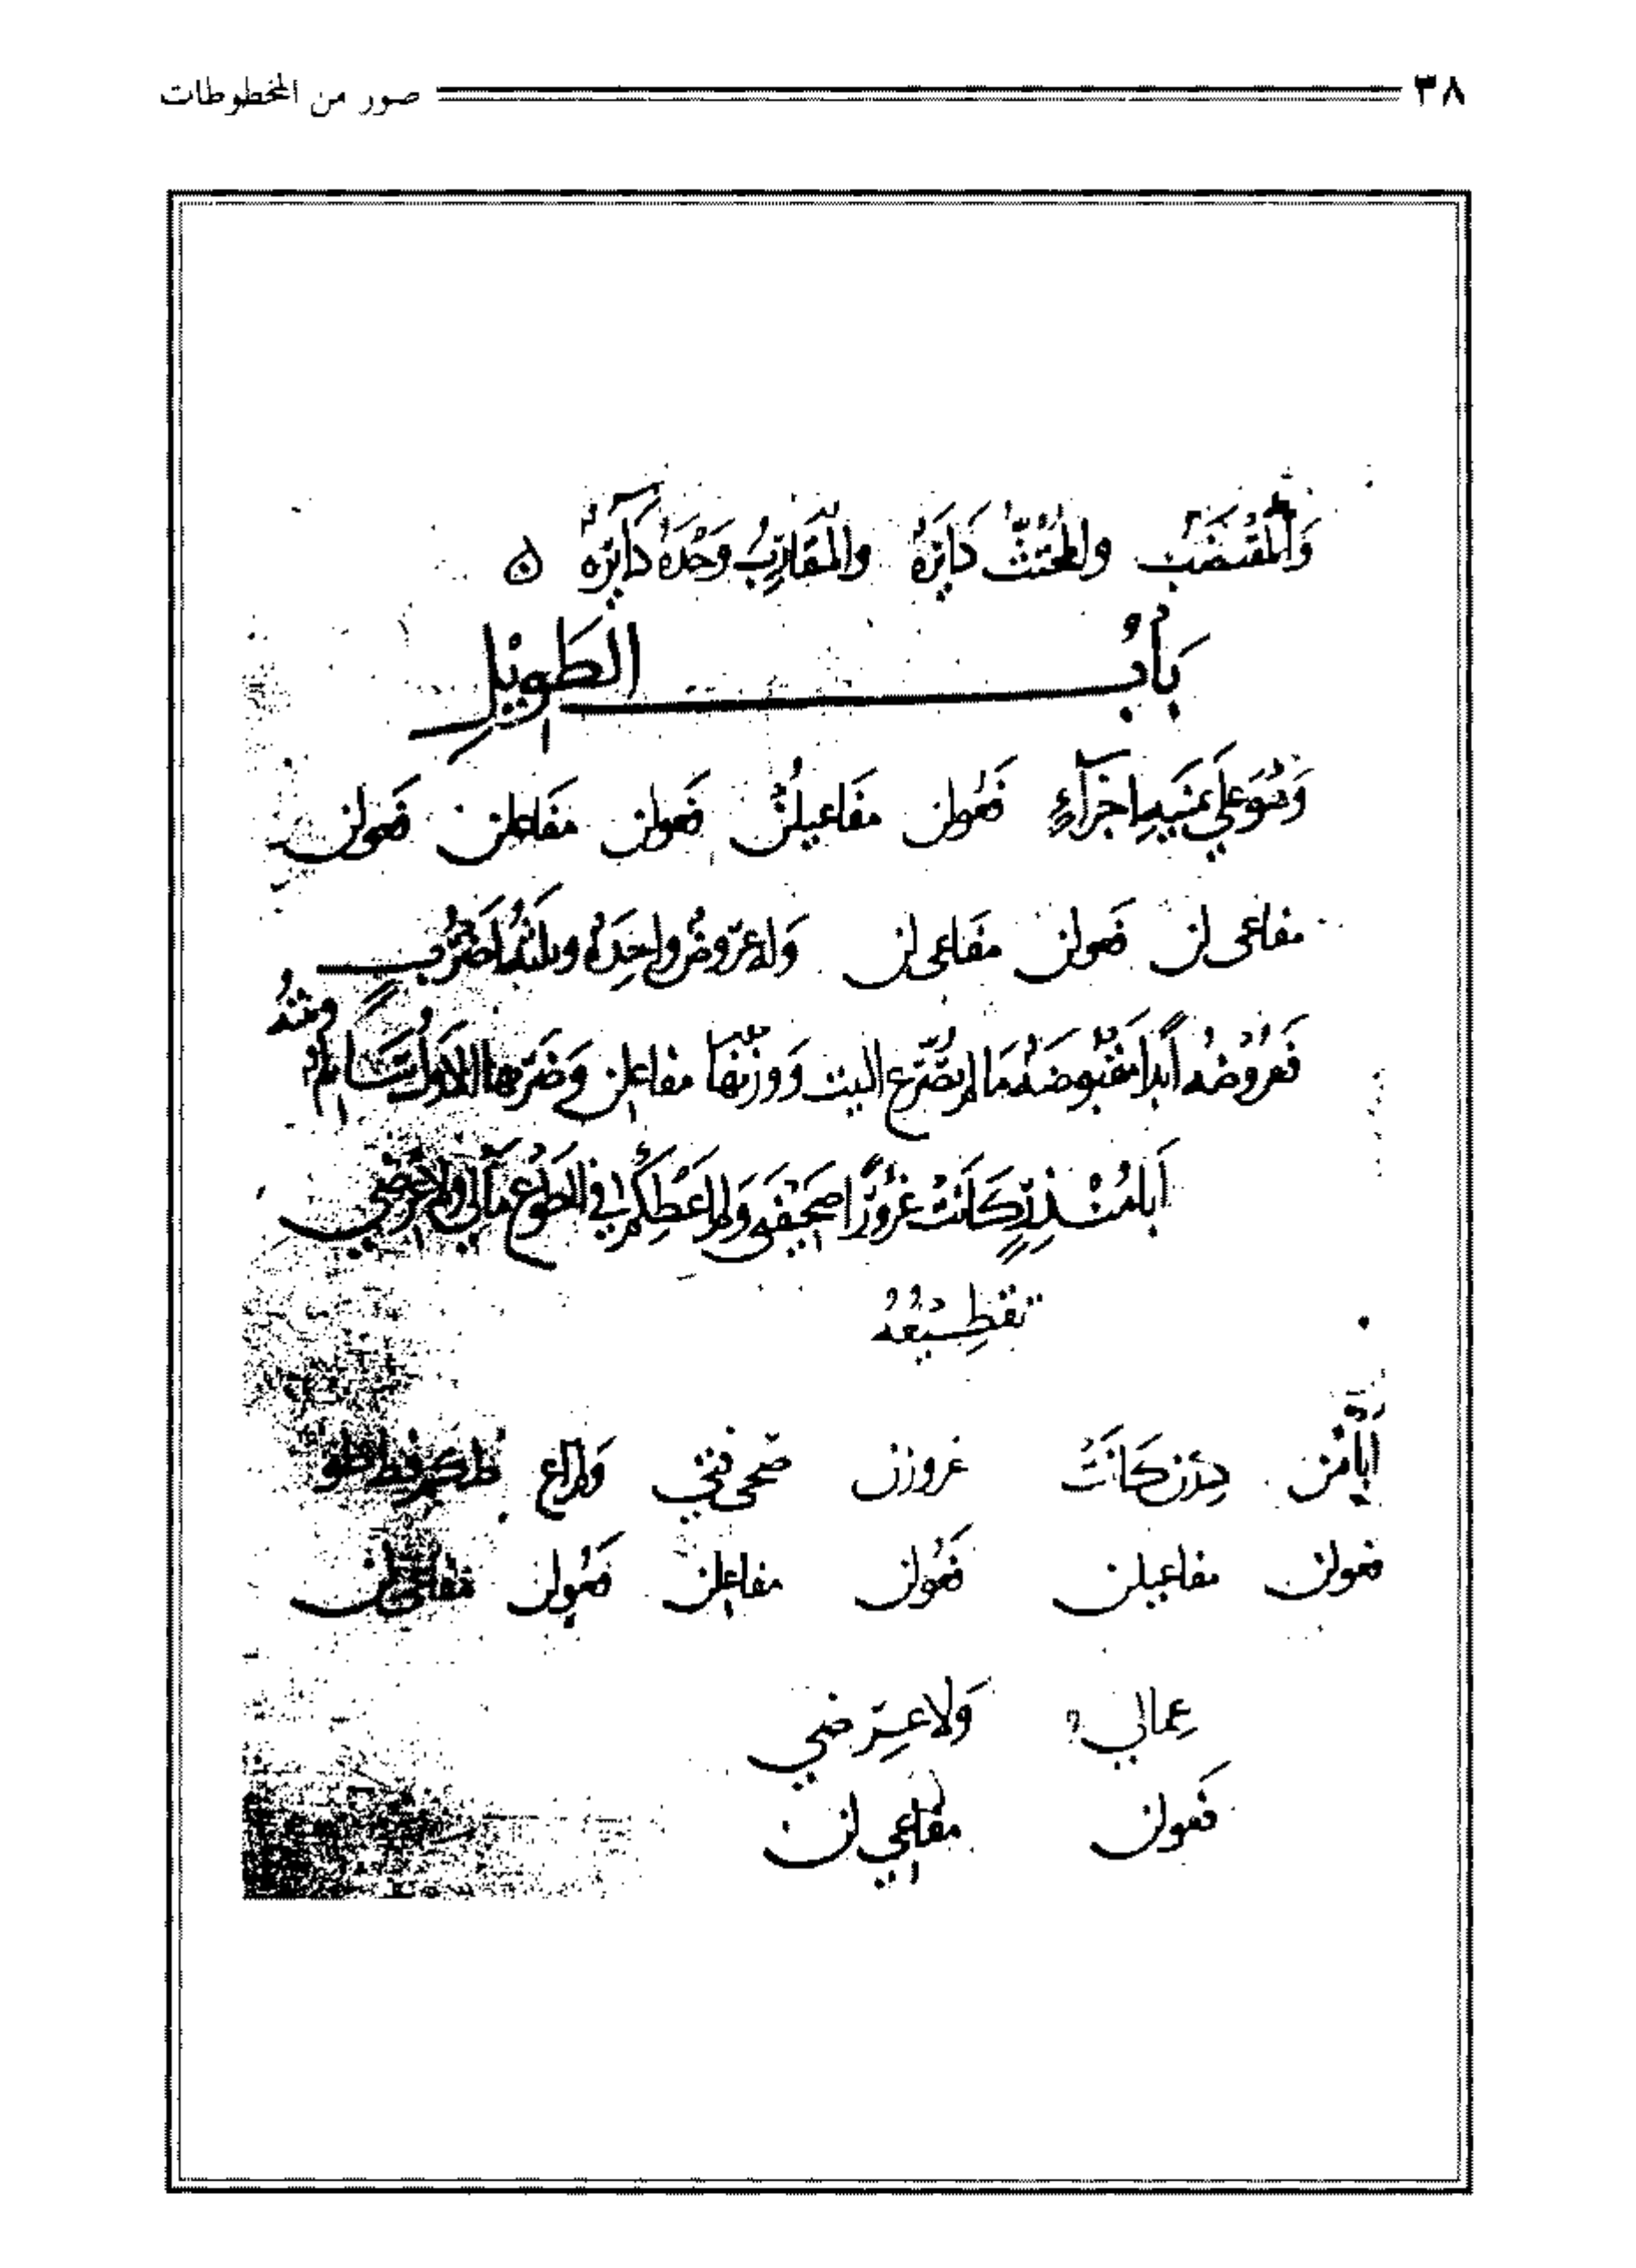 ٣٨ صور من المخطوطات
وَالمُقْتَضَبُ والمُجْتَثُّ دَائِرَةٌ والمُتَقَارِبُ وَحْدَهُ دَآئِرَةٌ ه
بَابُ الطَوِيْلِ
وَهُوَ عَلَى ثمنيه اجزَآءٍ فَعُولن مفَاعيلُن فَعولن مفَاعلن فَعولن
مفاعى لن فَعولن مفَاعى لن وَله عَرُوضٌ واحِدَهٌ وثلثَةُ اَضرُبٍ
فَعَرُوْضُه اَبَدًا مَقْبُوضَهٌ مَا لم يُصَرَّع البيت وَوَزْنُهَا مفاعلن وَضَرْبها الاوّلُ سَالمٌ وبيتُهُ
اَبَا مُنْذِرٍ كَانَتْ غرُوْرًا صَحِيْفَتي وَلم اُعْطِكُمْ في الطَوْعِ مَالي ولا عِرْضي
تقطِيْعُهُ
اَبَا مُن ذِرِن كَانَتْ غرورن صَحى فتي وَلم اع طكم فططو
فعولن مفاعيلن فَعُولن مفاعلن فَعُولن مفاعى لن
عِمالي وَلا عِرْ ضي
فَعولن مفاعي لن